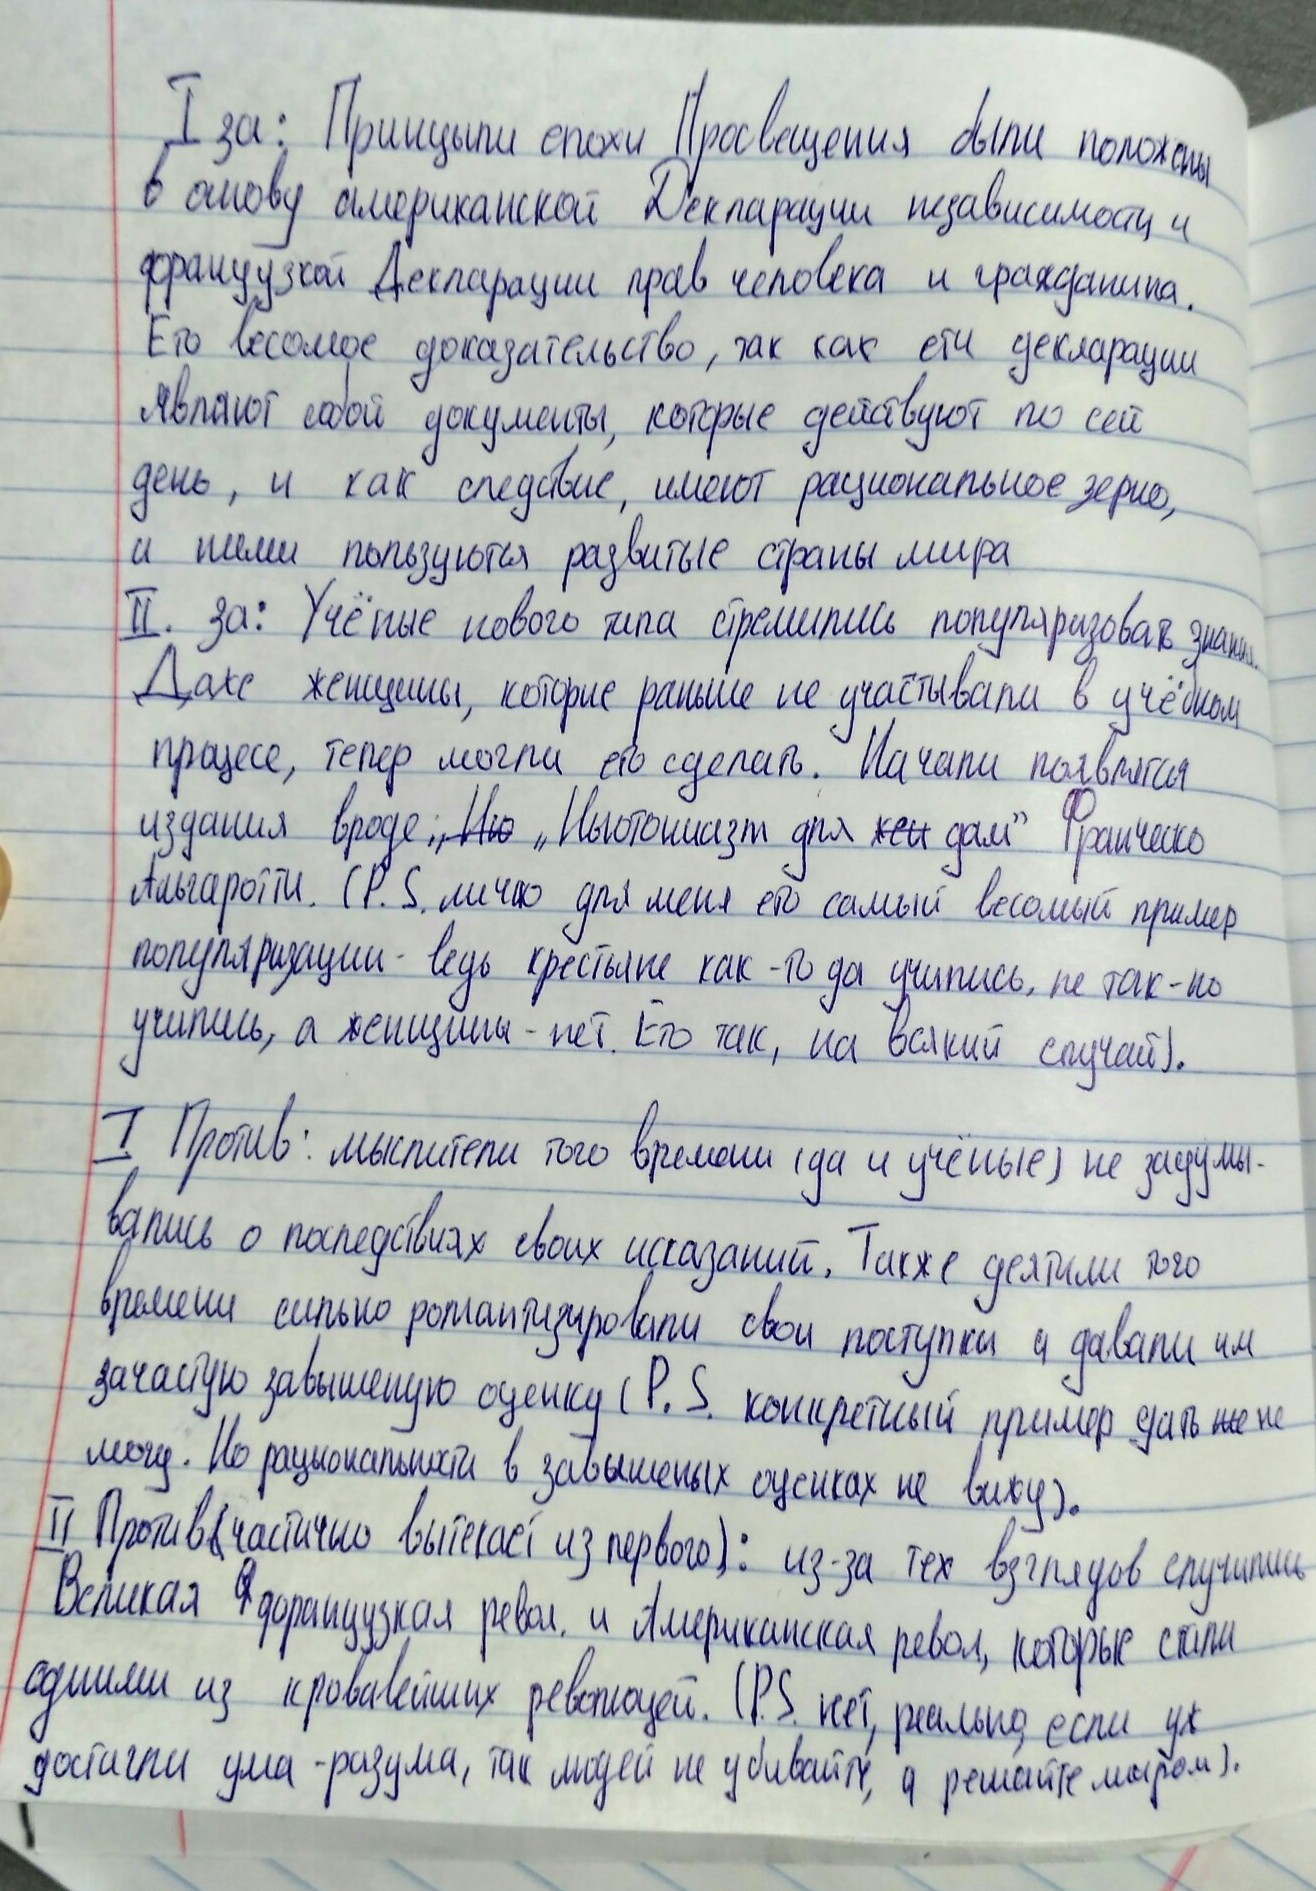 I за: Принцыпи епохи Просвещения были положены
в основу американской Декларации независимости и
французкой Декларации прав человека и гражданина.
Ето весомое доказательство, так как ети декларации
являют собой документы, которые действуют по сей
день, и как следствие, имеют рациональное зерно,
и ними пользуются развитые страны мира
II. за: Учёные нового типа стремились популяризовать знания.
Даже женщины, которие раньше не участывали в учёбном
процесе, тепер могли ето сделать. Начали появлятся
издания вроде „Ню „Ньютониазм для жен дам” Франческо
Альгаротти. (P.S. лично для меня ето самый весомый пример
популяризации - ведь крестьяне как-то да учились, не так-но
учились, а женщины - нет. Ето так, на всякий случай).
I Против: мыслители того времени (да и учёные) не задумы-
вались о последствиях своих исказаний. Также деятили того
времени сильно романтизировали свои поступки и давали им
зачастую завышеную оценку (P.S. конкретный пример дать не не
могу. Но рациональности в завышеных оценках не вижу).
II Против (частично вытекает из первого): из-за тех взглядов случились
Великая французкая револ. и Американская револ, которые стали
одними из кровавейших революцей. (P.S. нет, реально, если уж
достигли ума-разума, так людей не убивайте, а решайте миром).